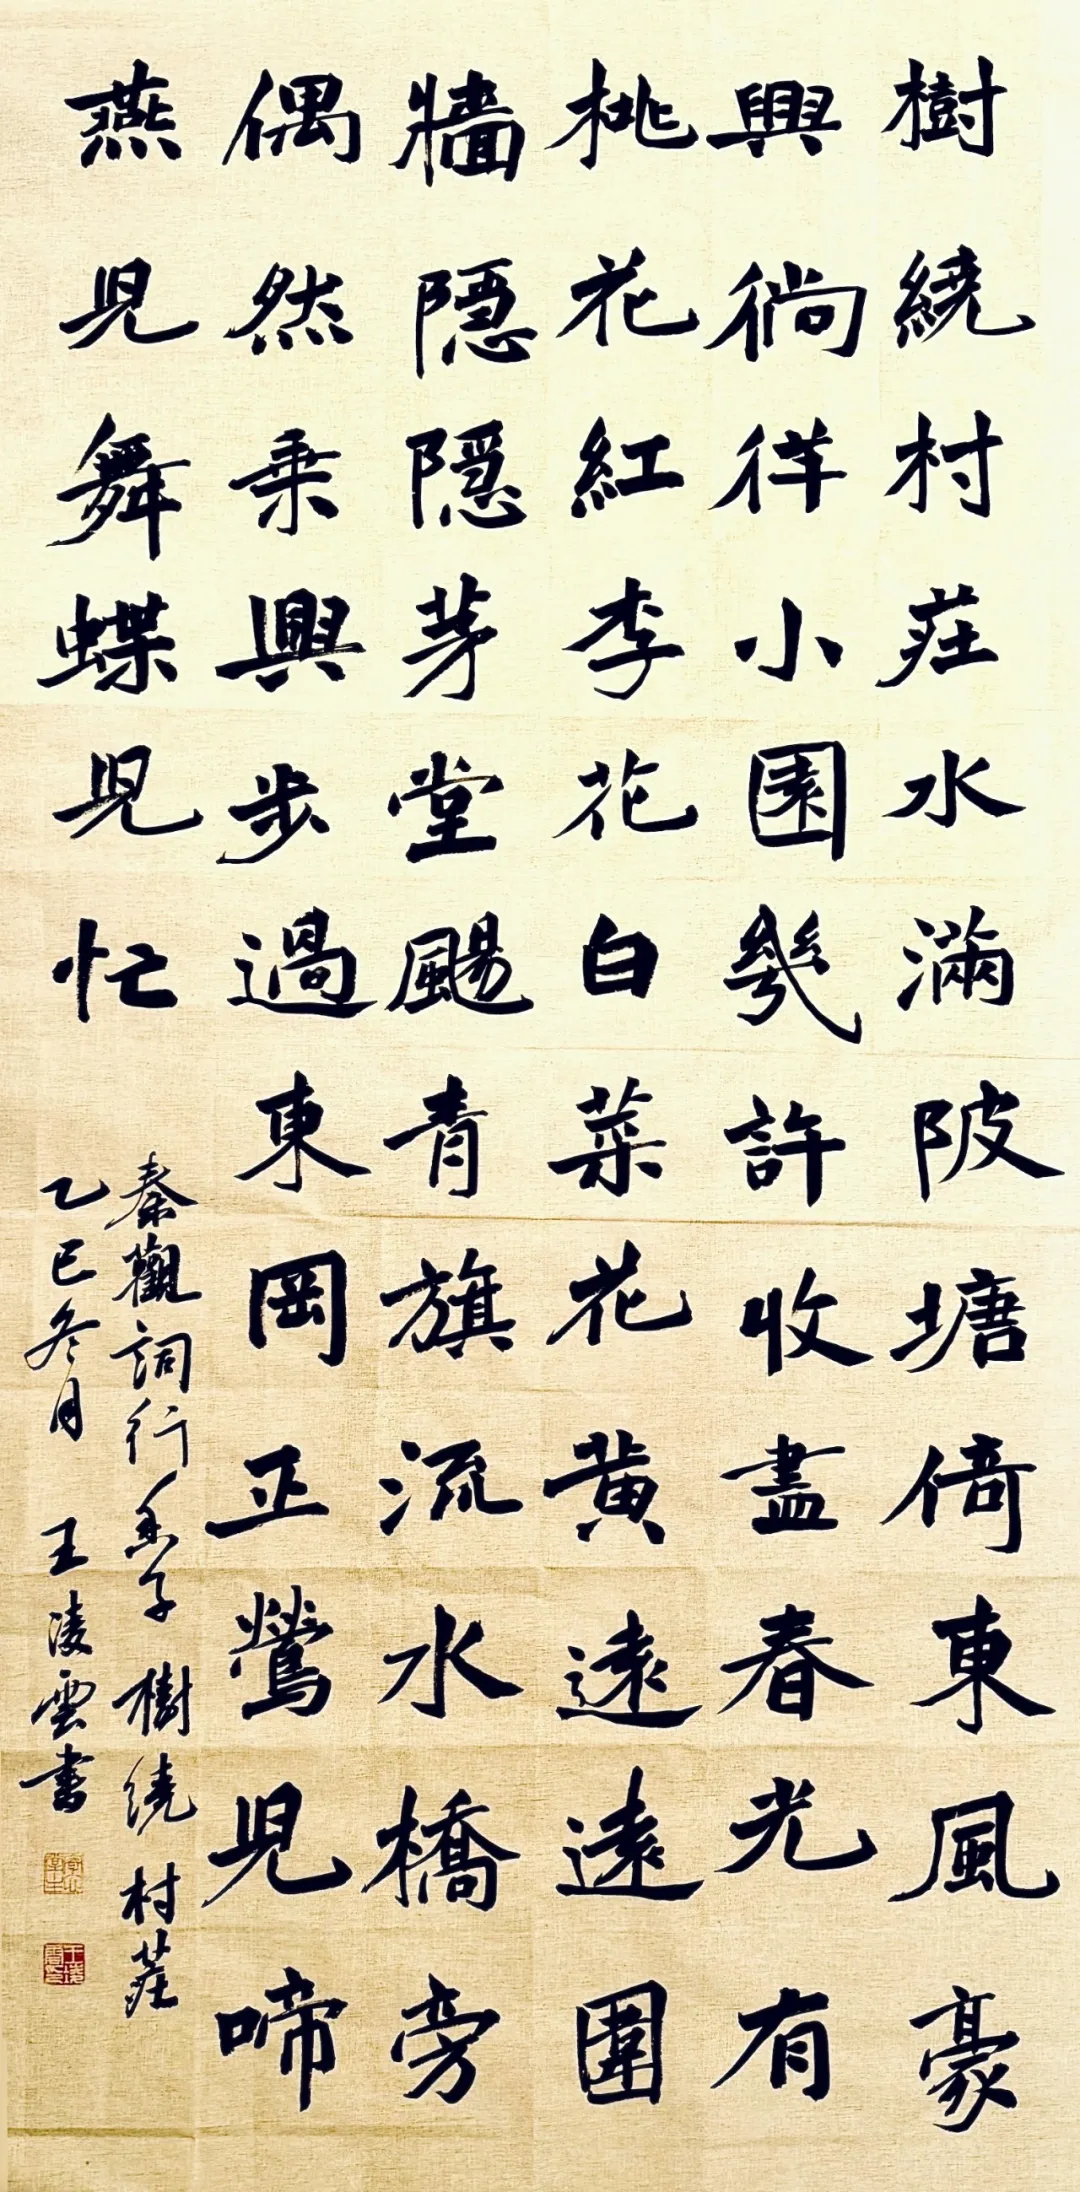 樹繞村莊水滿陂塘倚東風豪
興徜徉小園幾許收盡春光有
桃花紅李花白菜花黃遠遠圍
牆隱隱茅堂颺青旗流水橋旁
偶然乘興步過東岡正鶯兒啼
燕兒舞蝶兒忙
秦觀詞行香子樹繞村莊
乙巳冬月 王凌雲書